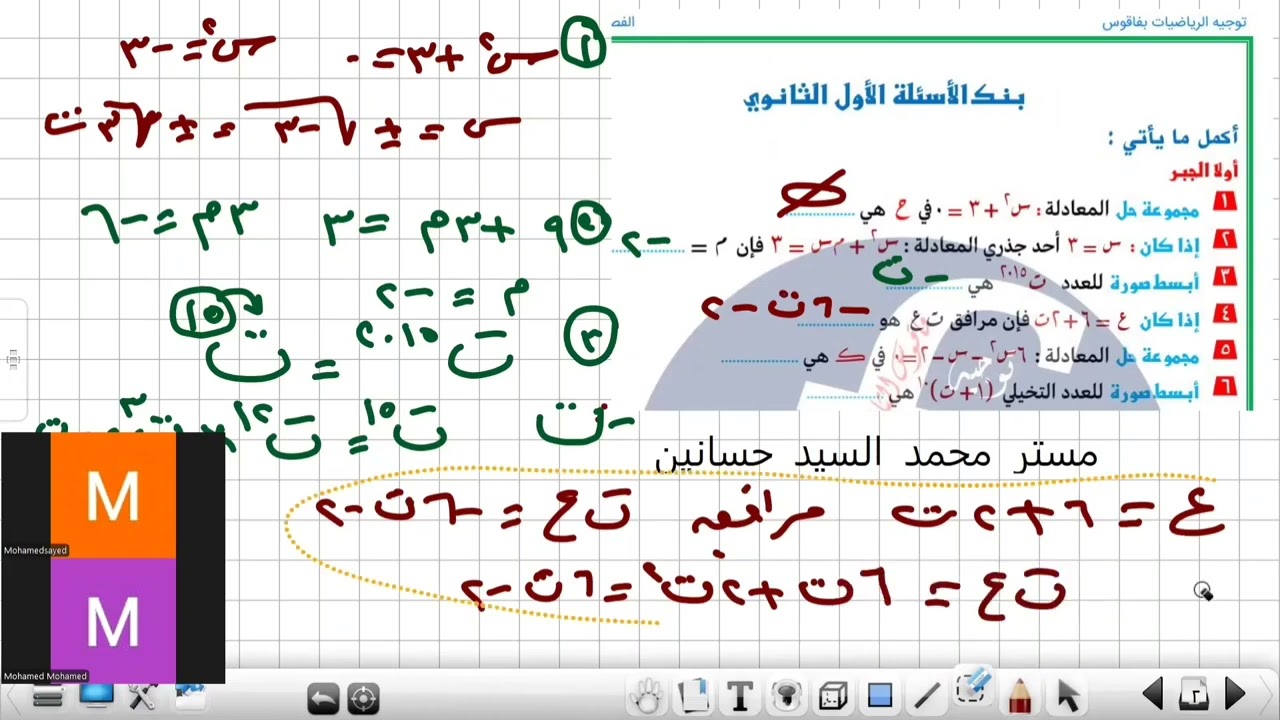 توجيه الرياضيات بفاقوس
الفص
بنك الأسئلة الأول الثانوي
أكمل ما يأتي :
أولا الجبر
١ مجموعة حل المعادلة : س٢ + ٣ = ٠ في ح هي ∅
٢ إذا كان : س = ٣ أحد جذري المعادلة : س٢ + م س = ٣ فإن م = -٢
٣ أبسط صورة للعدد ت٢٠١٥ هي -ت
٤ إذا كان ع = ٦ + ٢ت فإن مرافق ت ع هو -٦ت -٢
٥ مجموعة حل المعادلة : ٦س٢ - س - ٢ = ٠ في ك هي
٦ أبسط صورة للعدد التخيلي (١ + ت)١٠ هي
مستر محمد السيد حسانين
١ س٢ + ٣ = ٠ س٢ = -٣
س = ± √-٣ = ± √٣ ت
٢ ٩ + ٣م = ٣ ٣م = -٦
م = -٢
٣ ت٢٠١٥ = ت١٥
ت١٥ = ت١٢ × ت٣
-ت
ع = ٦ + ٢ت مرافق ت ع = -٦ت -٢
ت ع = ٦ت + ٢ت٢ = ٦ت -٢
M
Mohamedsayed
M
Mohamed Mohamed
T
٢